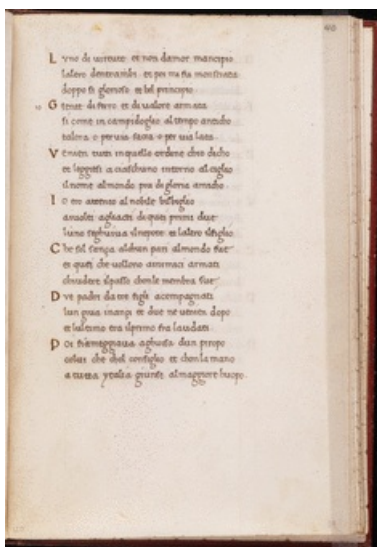 L vno di uirtute et non damor mancipio
laltro dentrambi et poi mi fia monstrata
doppo si glorioso et bel principio
G ente di ferro et di ualore armata
si come in campidoglio al tempo anticho
talora o per uia sacra o per uia lata
V enien tutti in quello ordine chio dicho
et leggesi a ciaschuno intorno al ciglio
il nome al mondo piu di gloria amicho
I o ero attento al nobile bisbiglio
a uolti agli acti di quei primi due
luno seghuiua il nepote et laltro il figlio
C he sol senza alchun pari al mondo fue
et quei che uollono a nemici armati
chiudere il passo chon le membra sue
D ve padri da tre figli acompagnati
lun giua inanzi et due ne uenien dopo
et lultimo era il primo fra laudati
P oi fiameggiaua a ghuisa dun piropo
colui che chol consiglio et chon la mano
a tutta ytalia giunse al maggiore huopo.